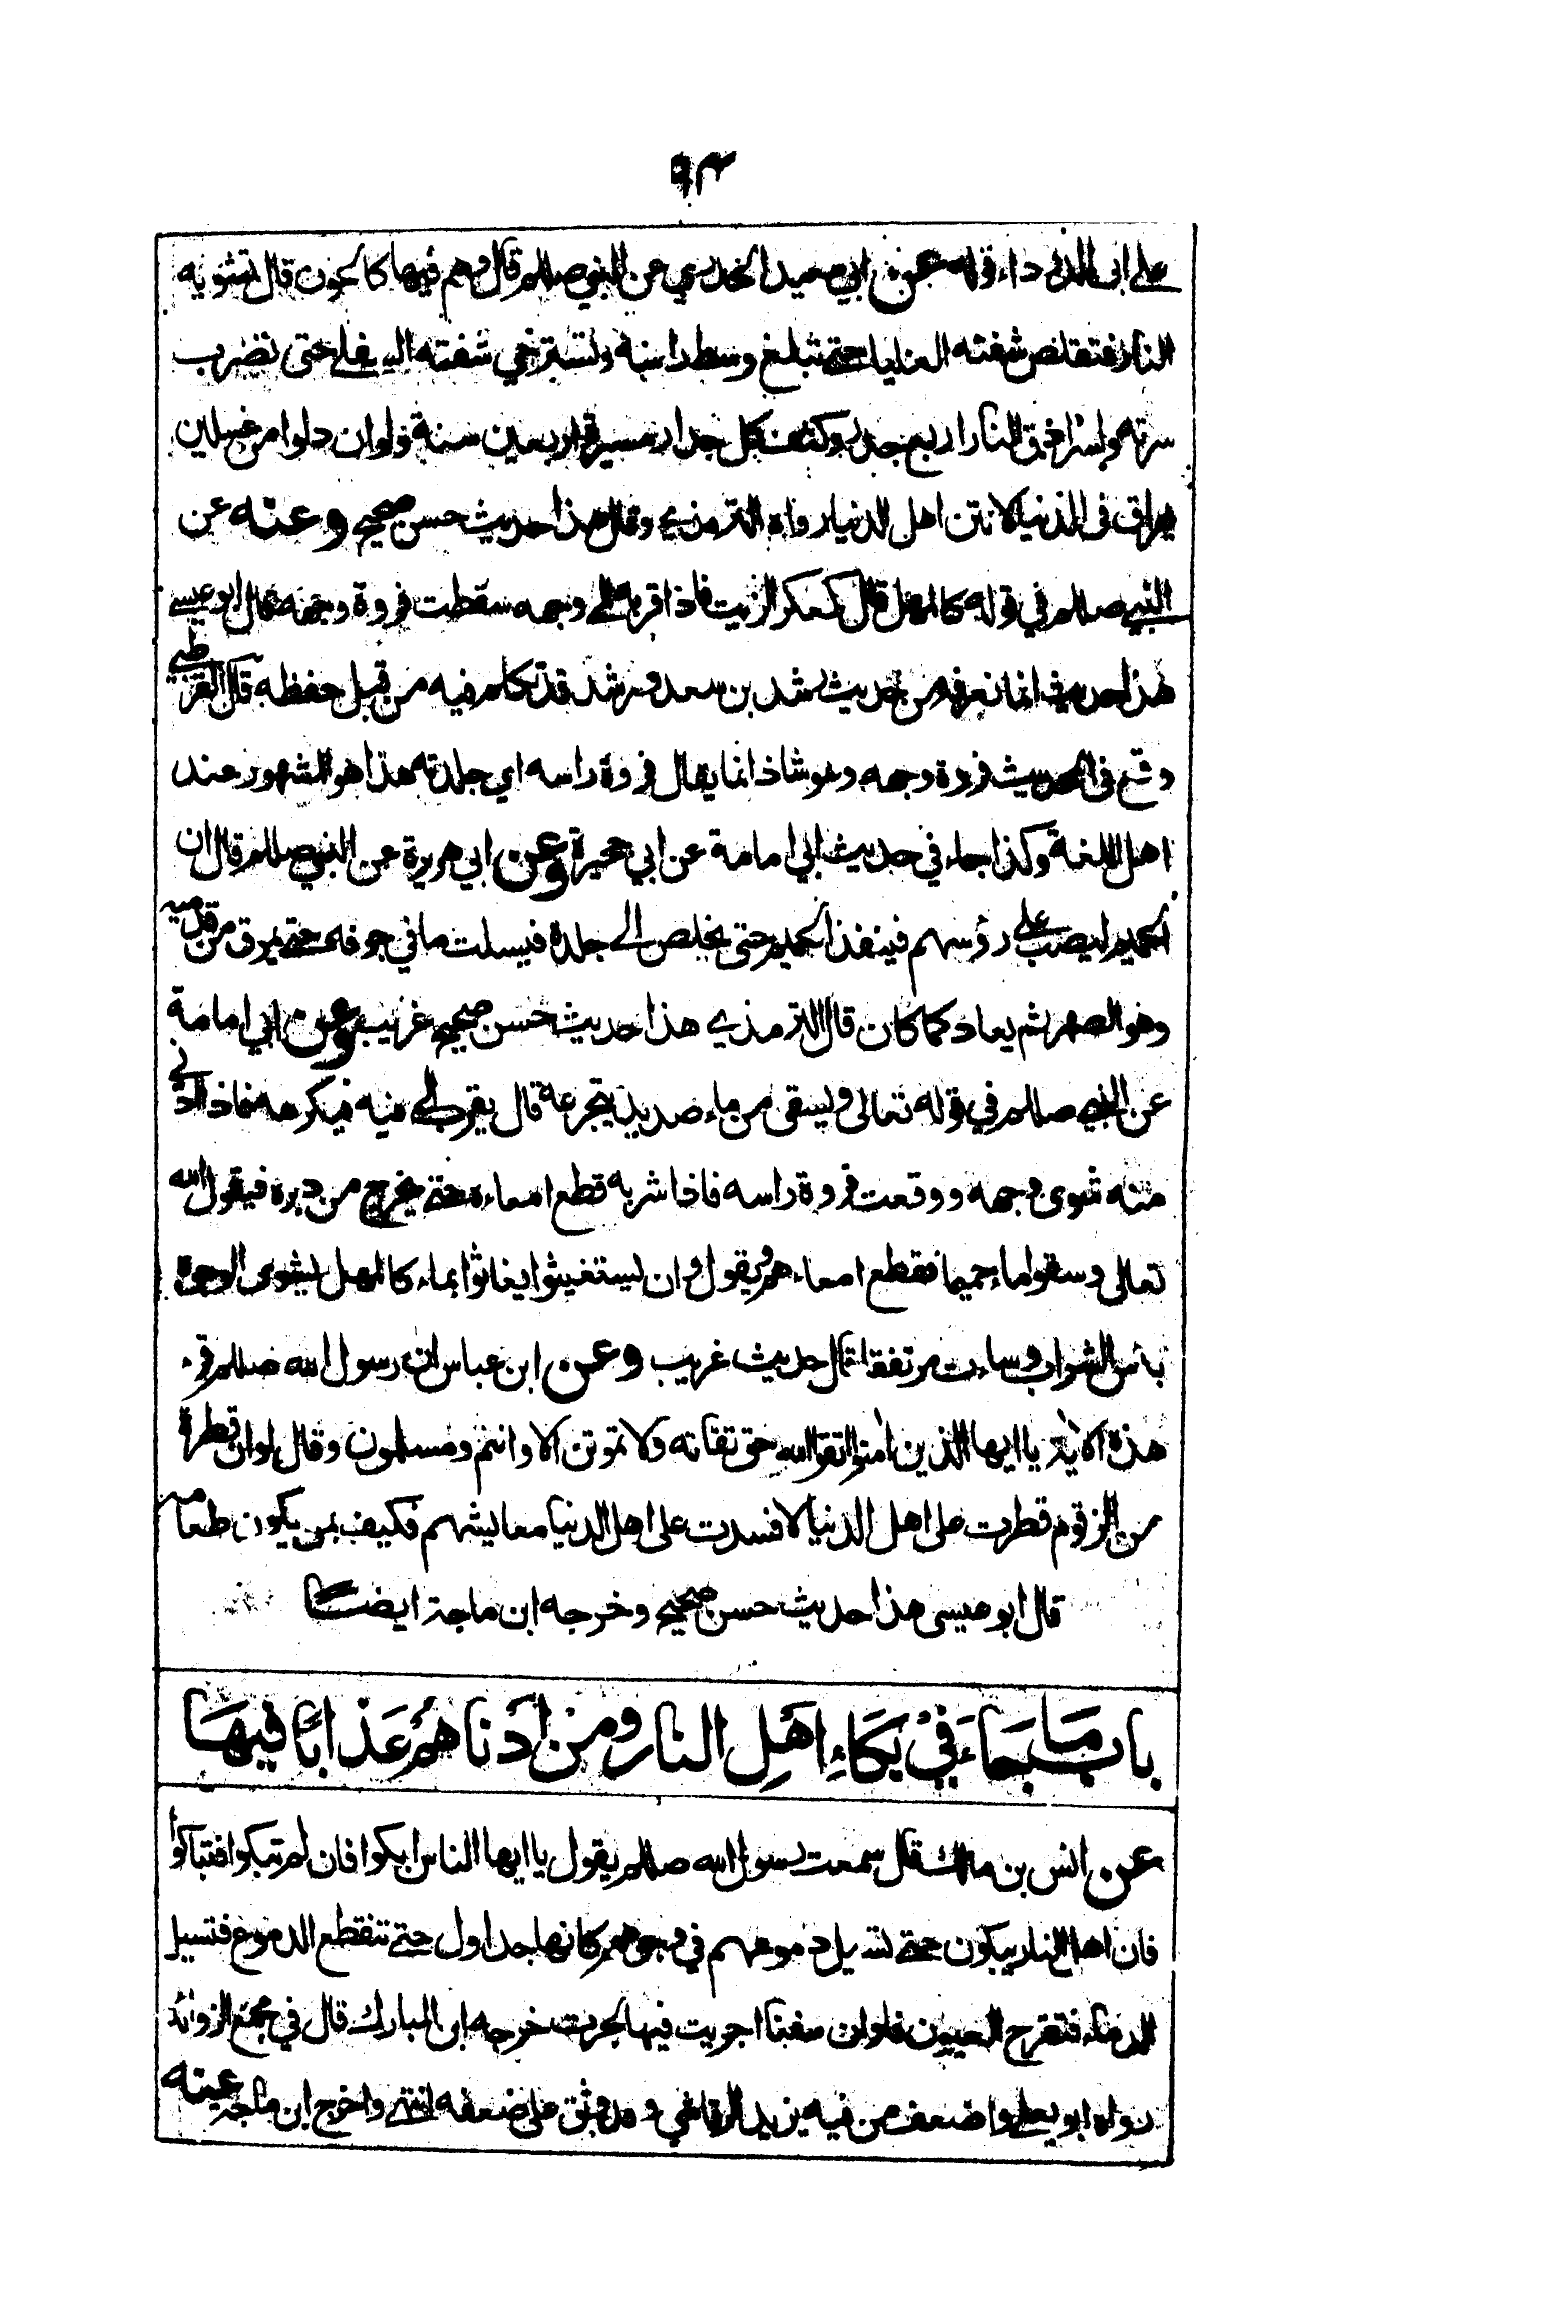 ٩٣
على ابى الدرداء قوله عن ابي سعيد الخدري عن النبي صللم قال وهم فيها كالحون قال تشويه
النار فتقلص شفته العليا حتى تبلغ وسط راسه وتسترخي شفته السفلى حتى تضرب
سرته ولسرادق النار اربع جدر وكثف كل جدار مسيرة اربعين سنة ولو ان دلوا من غسلين
يهراق في الدنيا لانتن اهل الدنيا رواه الترمذي وقال هذا حديث حسن صحيح وعنه عن
النبي صللم في قوله كالمهل قال كعكر الزيت فاذا قربه الى وجهه سقطت فروة وجهه قال ابو عيسى
هذا حديث انما نعرفه من حديث رشد بن سعد ورشد قد تكلم فيه من قبل حفظه قال القرطبي
وقع في الحديث فروة وجهه وهو شاذ انما يقال فروة راسه اي جلدته هذا هو المشهور عند
اهل اللغة وكذا جاء في حديث ابي امامة عن ابي حجيرة وعن ابي هريرة عن النبي صللم قال ان
الحميم ليصب على رؤسهم فينفذ الحميم حتى يخلص الى جلده فيسلت ما في جوفه حتى يمرق من قدميه
وهو الصهر ثم يعاد كما كان قال الترمذي هذا حديث حسن صحيح غريب وعن ابي امامة
عن النبي صللم في قوله تعالى ويسقى من ماء صديد يتجرعه قال يقرب الى فيه فيكرهه فاذا ادني
منه شوى وجهه ووقعت فروة راسه فاذا شربه قطع امعاءه حتى يخرج من دبره فيقول الله
تعالى وسقوا ماء حميما فقطع امعاءهم ويقول وان يستغيثوا يغاثوا بماء كالمهل يشوى الوجوه
بئس الشراب وساءت مرتفقا قال حديث غريب وعن ابن عباس ان رسول الله صللم قرء
هذه الاية يا ايها الذين امنوا اتقوا الله حق تقاته ولا تموتن الا وانتم ومسلمون وقال لو ان قطرة
من الزقوم قطرت على اهل الدنيا لافسدت على اهل الدنيا معايشهم فكيف بمن يكون طعامه
قال ابو عيسى هذا حديث حسن صحيح وخرجه ابن ماجة ايضا
باب ما جَاءَ في بُكَاءِ اَهْلِ النار ومن اَدْنَاهُم عَذَابًا فيهَا
عن انس بن مالك قال سمعت رسول الله صللم يقول يا ايها الناس ابكوا فان لم تبكوا فتباكوا
فان اهل النار يبكون حتى تسيل دموعهم في وجوههم كانها جداول حتى تنقطع الدموع فتسيل
الدماء فتقرح العيون فلو ان سفنا اجريت فيها لجرت خرجه ابن المبارك قال في مجمع الزوائد
رواه ابو يعلى واضعف من فيه يزيد الرقاشي وقد وثق على ضعفه انتهى واخرج ابن ماجة عينه